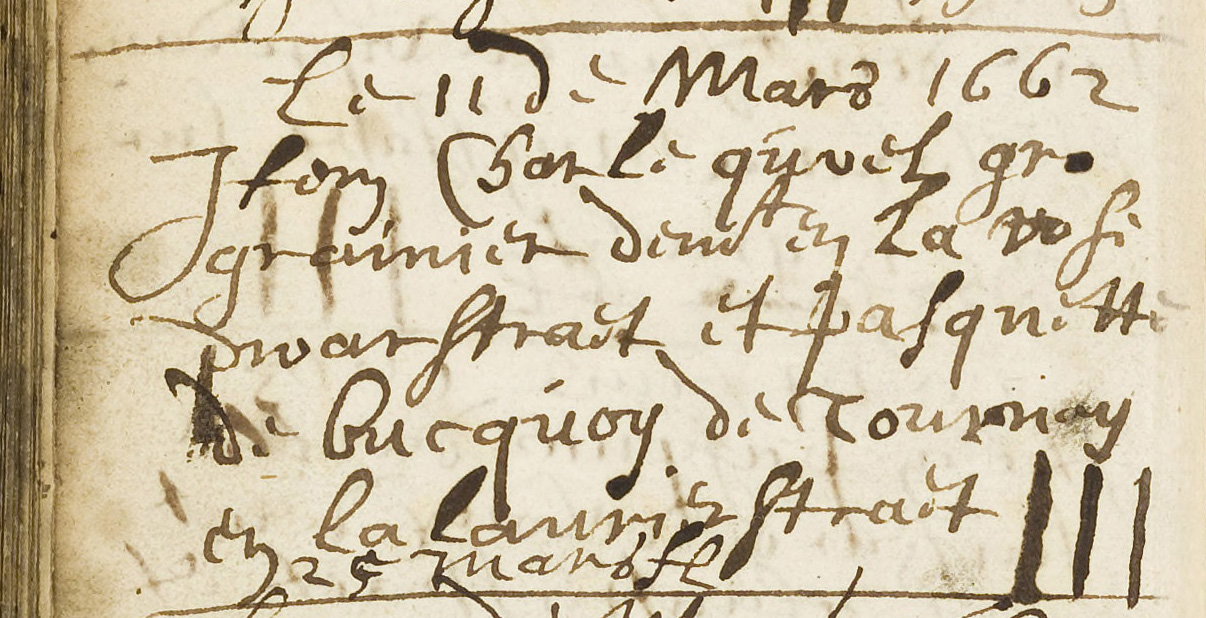 Le 11 de Mars 1662
Item Charle quvel gr.
grainier demt en La rose
dwarstraet et pasquette
de bucquoy de Tournay
en la laurierstraet III
25 mars